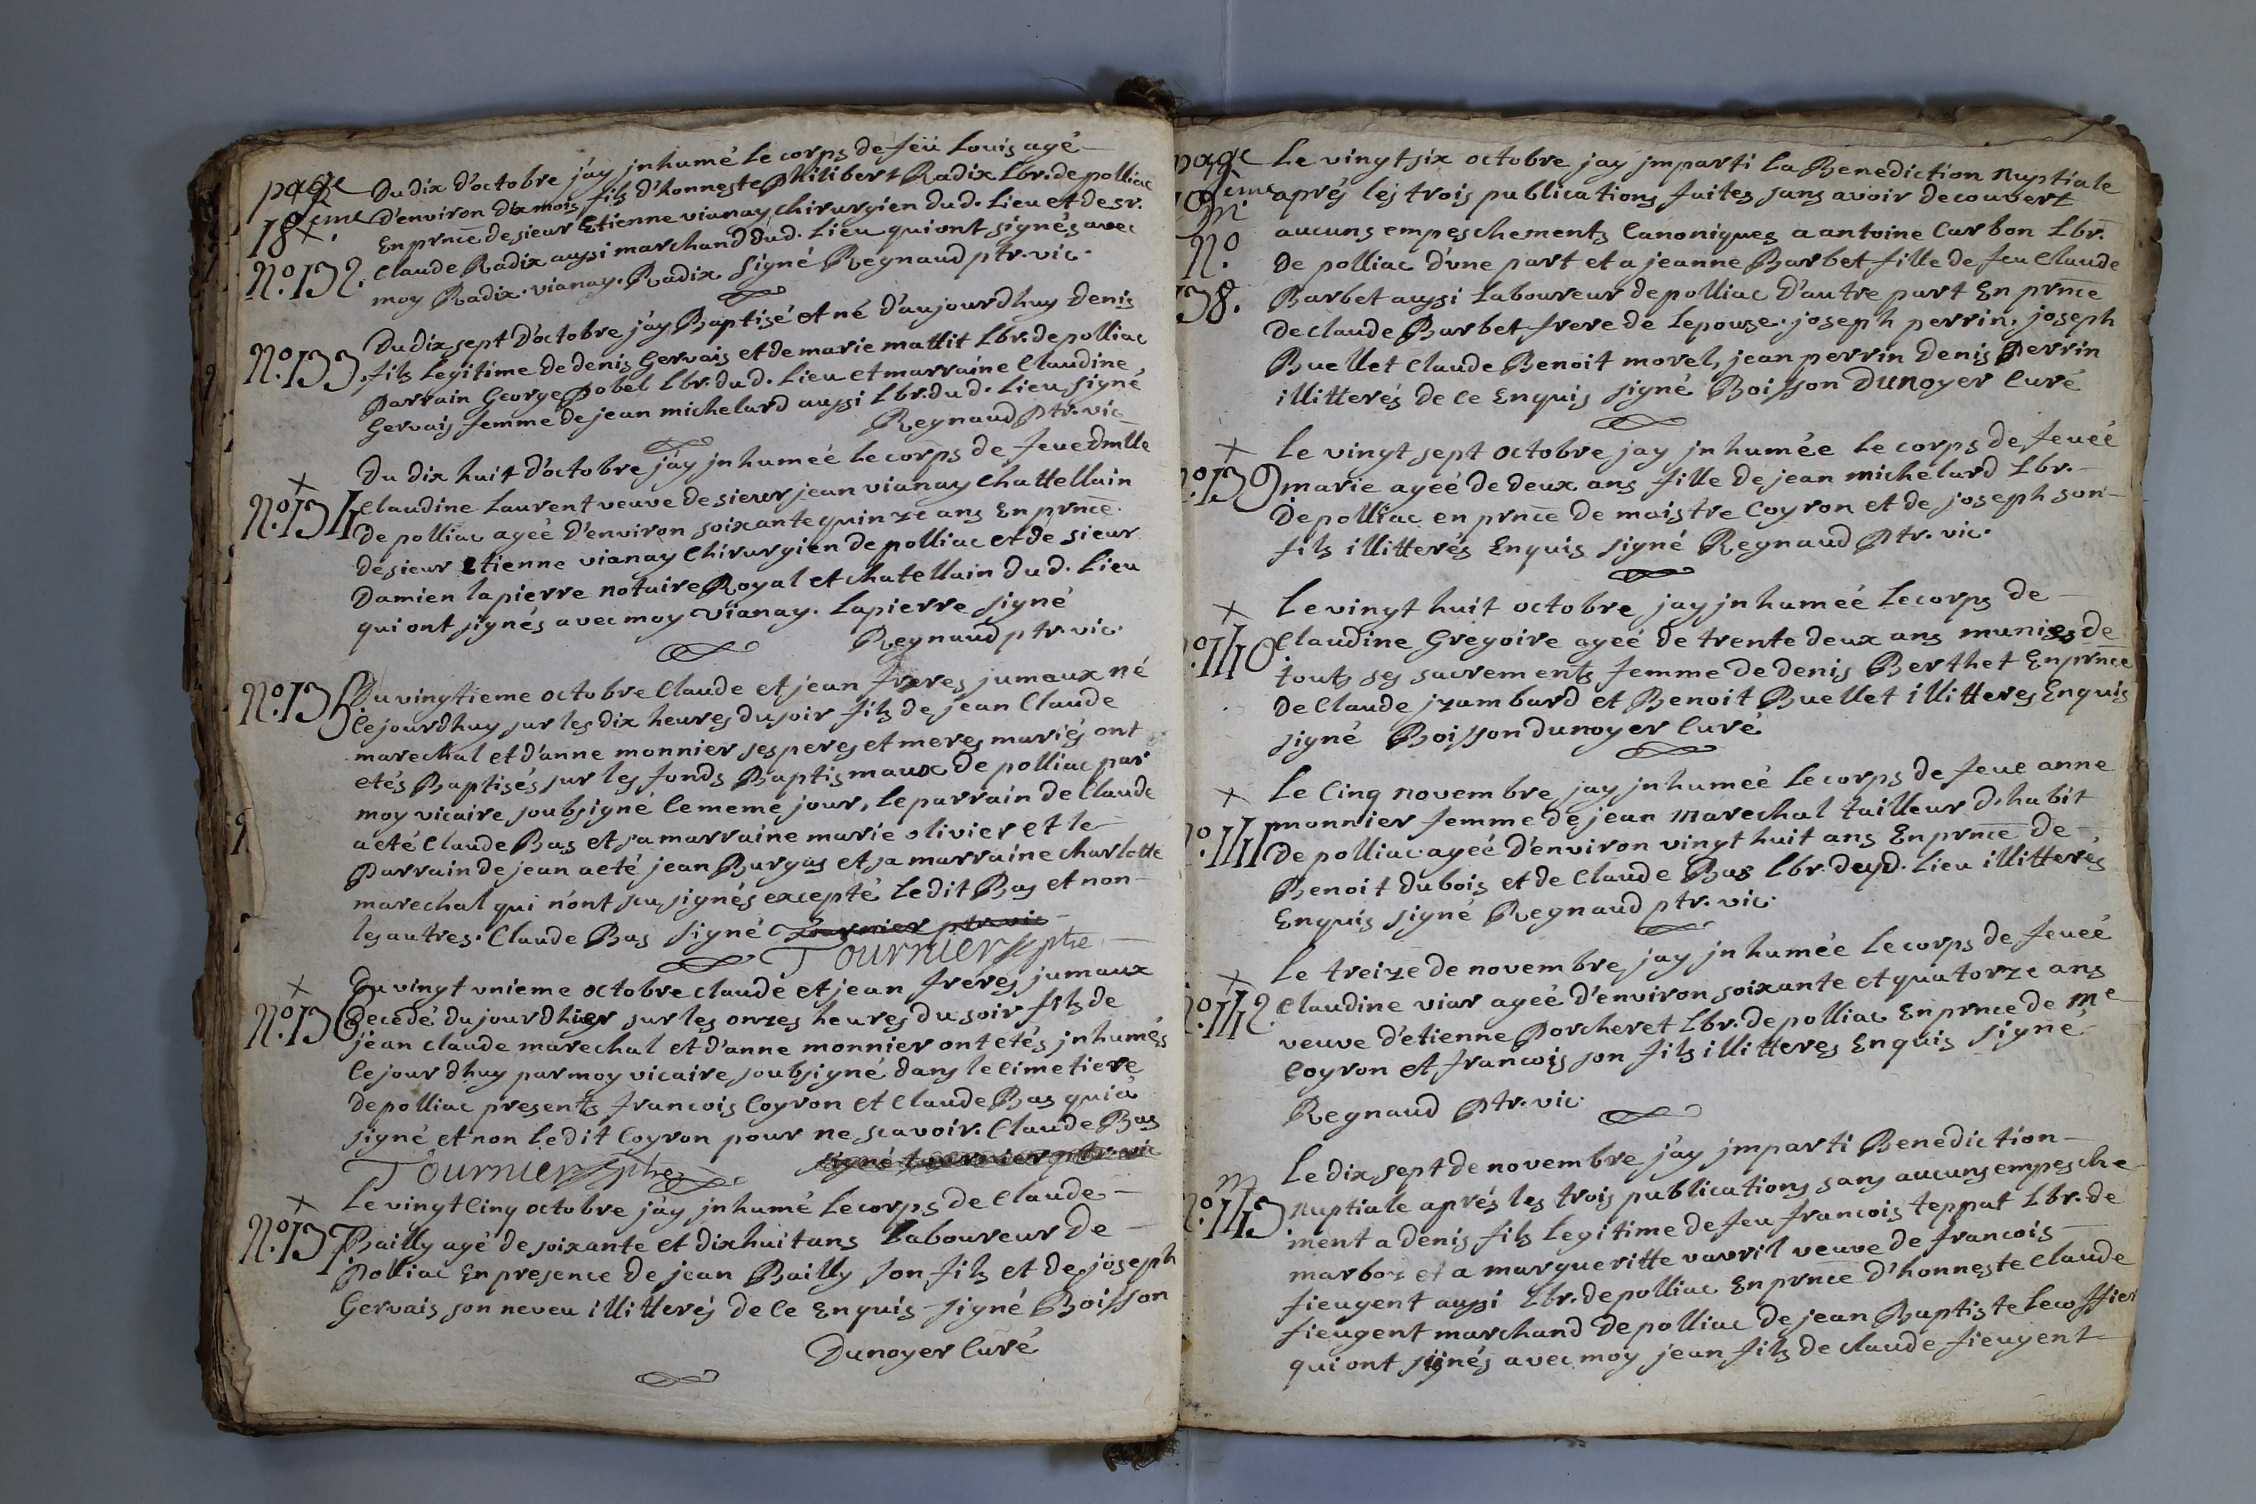 page
18eme
N.º 132.
Du dix d'octobre j'ay jnhumé le corps de feü Louis agé
d'environ dix mois fils d'honneste Philibert Radix Lbr. de polliac
En prnce de sieur Etienne vianay chirurgien du d. Lieu et de sr.
Claude Radix aussi marchand dud. Lieu qui ont signés avec
moy Radix. vianay. Radix signé Regnaud ptr. vic.
N.º 133.
Du dix sept d'octobre j'ay Baptisé et né d'aujourdhuy denis
fils Legitime de denis Gervais et de marie mallit Lbr. de polliac
Parrain George Pobel Lbr. du d. Lieu et marraine Claudine
Gervais femme de jean michelard aussi Lbr. du d. Lieu, signé
Regnaud Ptr. vic
+
N.º 134
Du dix huit d'octobre j'ay jnhumeé le corps de feue dmlle
Claudine Laurent veuve de sieur jean vianay Chattellain
De polliac ageé d'environ soixante quinze ans En prnce.
de sieur Etienne vianay Chirurgien de polliac et de sieur
Damien lapierre notaire Royal et chatellain du d. Lieu
qui ont signés avec moy vianay. Lapierre signé
Regnaud ptr. vic.
N.º 135
Du vingtieme octobre Claude et jean freres jumeaux né
Cejourdhuy sur les dix heures du soir fils de jean Claude
marechal et d'anne monnier ses peres et meres mariés ont
etés Baptisés sur les fonds Baptismaux de polliac par
moy vicaire soubsigné le meme jour, le parrain de Claude
a eté Claude Bas et sa marraine marie olivier et le
Parrain de jean a eté jean Burgas et sa marraine charlotte
marechal qui n'ont scu signés excepté Ledit Bas et non
les autres. Claude Bas signé Tournier ptr. vic
Tournier ptre
+
N.º 136
Du vingt unieme octobre claude et jean fréres jumaux
Decedé du jourdhier sur les onzes heures du soir fils de
jean claude marechal et d'anne monnier ont etés jnhumés
Cejourdhuy par moy vicaire soubsigné dans le cimetiere
de polliac presents francois Coyron et Claude Bas qui a
signé et non ledit Coyron pour ne scavoir. Claude Bas
Tournier ptre signé tournier ptr. vic
+
N.º 137
Le vingt Cinq octobre j'ay jnhumé le corps de Claude
Bailly agé de soixante et dixhuit ans Laboureur de
Polliac En presence de jean Bailly son fils et de joseph
Gervais son neveu illitterés de ce Enquis signé Boisson
Dunoyer Curé
page
19eme
m.
N.º
138.
Le vingt six octobre jay jmparti La Benediction nuptiale
aprés les trois publications faites sans avoir decouvert
aucuns empeschements Canoniques a antoine Carbon Lbr.
De polliac d'une part et a jeanne Barbet fille de feu Claude
Barbet aussi Laboureur de polliac d'autre part En prnce
De Claude Barbet frere de lepouse. joseph perrin, joseph
Buellet Claude Benoit morel, jean perrin Denis Perrin
illitterés de ce Enquis signé Boisson Dunoyer Curé
+
N.º 139
Le vingt sept octobre jay jnhumée Le corps de feueé
marie ageé de deux ans fille de jean michelard Lbr.
De polliac en prnce de maistre Coyron et de joseph son
fils illitterés Enquis signé Regnaud Ptr. vic.
+
N.º 140
Le vingt huit octobre jay jnhumeé Le corps de
Claudine Gregoire ageé de trente deux ans munies de
touts ses sacrements femme de denis Berthet En prnce
De Claude jzambard et Benoit Buellet illitteres Enquis
signé Boisson dunoyer Curé
+
N.º 141
Le Cinq novembre jay jnhumeé Le corps de feue anne
monnier femme de jean marechal tailleur d'habit
De polliac ageé d'environ vingt huit ans En prnce de
Benoit dubois et de Claude Bas Lbr. du d. Lieu illitterés
Enquis signé Regnaud ptr. vic.
+
N.º 142
Le treize de novembre jay jnhumée Le corps de feueé
Claudine viar ageé d'environ soixante et quatorze ans
veuve d'étienne Porcheret Lbr. de polliac En prnce de Me
Coyron et francois son fils illitteres Enquis signé
Regnaud Ptr. vic.
m
N.º 143
Le dix sept de novembre j'ay jmparti Benediction
nuptiale aprés les trois publications sans aucuns empesche
ment a denis fils Legitime de feu francois teppat Lbr. de
marboz et a margueritte vavril veuve de francois
fieugent aussi Lbr. de polliac En prnce d'honneste Claude
fieugent marchand de polliac de jean Baptiste Lecoffier
qui ont signés avec moy jean fils de claude fieugent